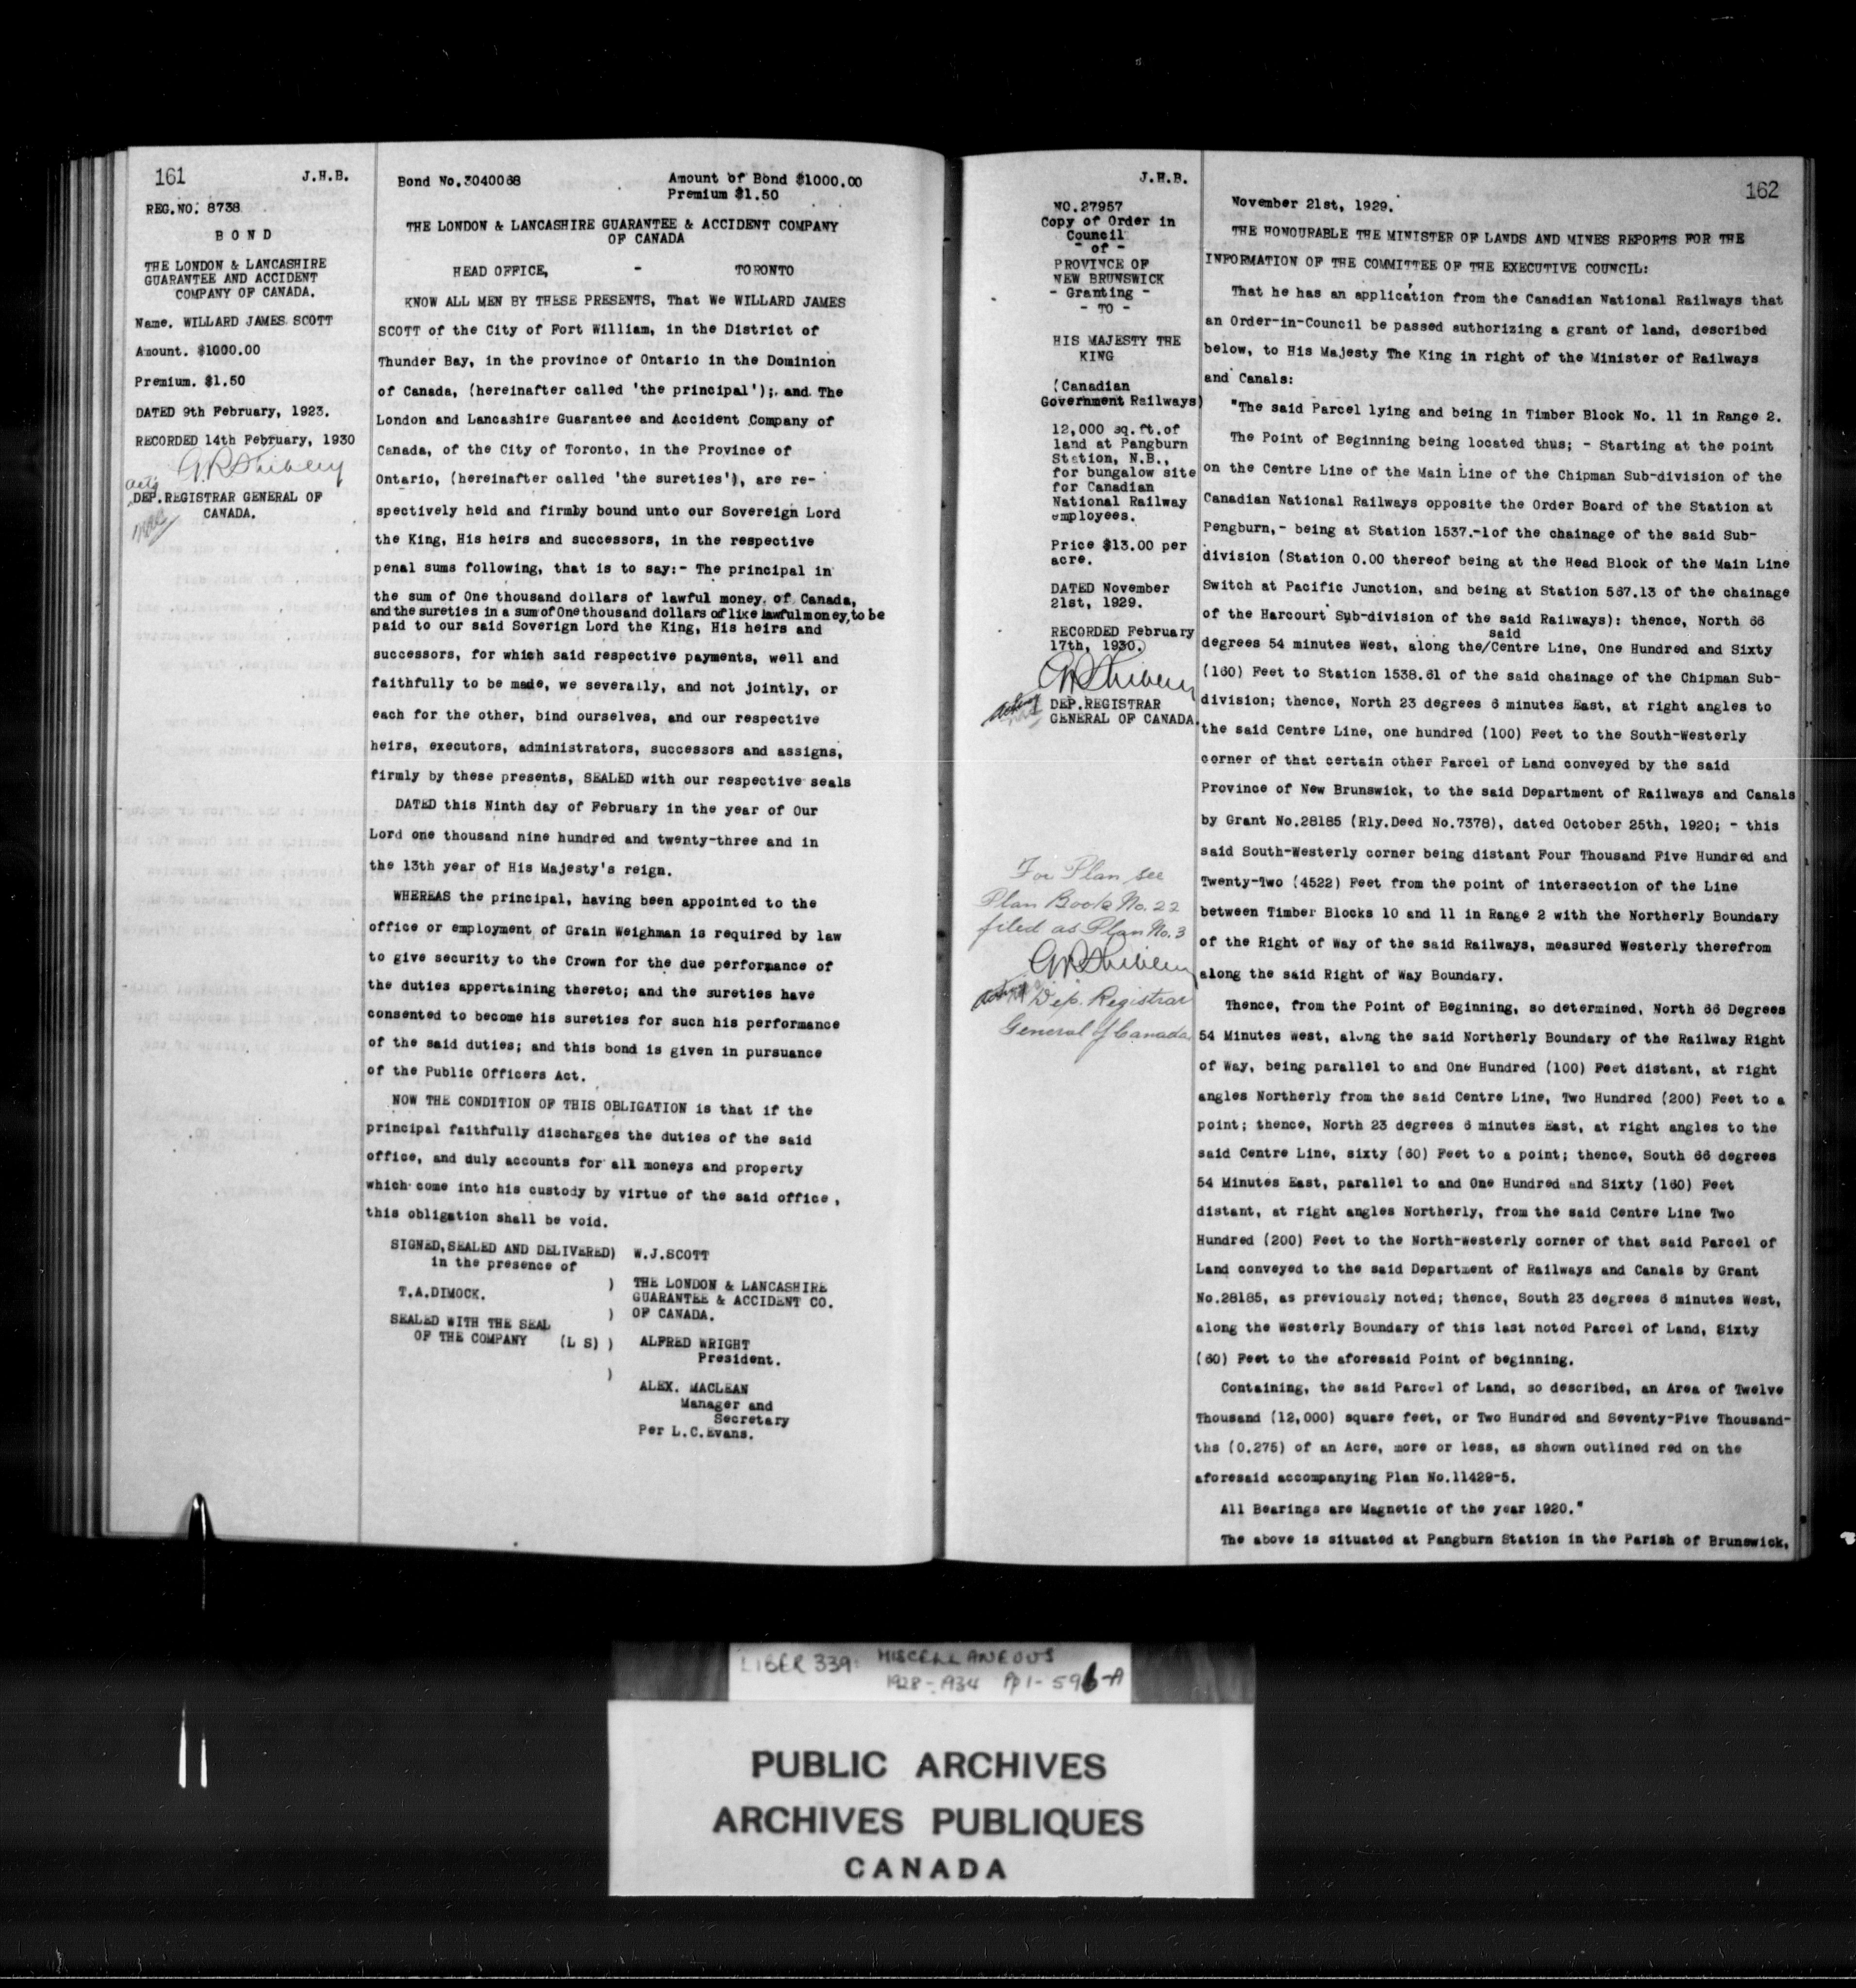 161
J.H.B.
REG.NO. 8738
B O N D
THE LONDON & LANCASHIRE
GUARANTEE AND ACCIDENT
COMPANY OF CANADA.
Name. WILLARD JAMES SCOTT
Amount. $1000.00
Premium. $1.50
DATED 9th February, 1923.
RECORDED 14th February, 1930
DEP.REGISTRAR GENERAL OF
CANADA.
Bond No.3040068
Amount of Bond $1000.00
Premium $1.50
THE LONDON & LANCASHIRE GUARANTEE & ACCIDENT COMPANY
OF CANADA
HEAD OFFICE, - TORONTO
KNOW ALL MEN BY THESE PRESENTS, That We WILLARD JAMES
SCOTT of the City of Fort William, in the District of
Thunder Bay, in the province of Ontario in the Dominion
of Canada, (hereinafter called 'the principal'); and The
London and Lancashire Guarantee and Accident Company of
Canada, of the City of Toronto, in the Province of
Ontario, (hereinafter called 'the sureties'), are re-
spectively held and firmly bound unto our Sovereign Lord
the King, His heirs and successors, in the respective
penal sums following, that is to say:- The principal in
the sum of One thousand dollars of lawful money of Canada,
and the sureties in a sum of One thousand dollars of like lawful money, to be
paid to our said Soverign Lord the King, His heirs and
successors, for which said respective payments, well and
faithfully to be made, we severally, and not jointly, or
each for the other, bind ourselves, and our respective
heirs, executors, administrators, successors and assigns,
firmly by these presents, SEALED with our respective seals
DATED this Ninth day of February in the year of Our
Lord one thousand nine hundred and twenty-three and in
the 13th year of His Majesty's reign.
WHEREAS the principal, having been appointed to the
office or employment of Grain Weighman is required by law
to give security to the Crown for the due performance of
the duties appertaining thereto; and the sureties have
consented to become his sureties for such his performance
of the said duties; and this bond is given in pursuance
of the Public Officers Act.
NOW THE CONDITION OF THIS OBLIGATION is that if the
principal faithfully discharges the duties of the said
office, and duly accounts for all moneys and property
which come into his custody by virtue of the said office,
this obligation shall be void.
SIGNED,SEALED AND DELIVERED) W.J.SCOTT
in the presence of
) THE LONDON & LANCASHIRE
T.A.DIMOCK. GUARANTEE & ACCIDENT CO.
) OF CANADA.
SEALED WITH THE SEAL
OF THE COMPANY (L S) ) ALFRED WRIGHT
President.
)
ALEX. MACLEAN
Manager and
Secretary
Per L.C.Evans.
J.H.B.
162
NO.27957
Copy of Order in
Council
- of -
PROVINCE OF
NEW BRUNSWICK
- Granting -
- TO -
HIS MAJESTY THE
KING
(Canadian
Government Railways)
12,000 sq.ft.of
land at Pangburn
Station, N.B.,
for bungalow site
for Canadian
National Railway
employees.
Price $13.00 per
acre.
DATED November
21st, 1929.
RECORDED February
17th, 1930.
acting
DEP.REGISTRAR
GENERAL OF CANADA.
For Plan see
Plan Book No. 22
filed as Plan No. 3
Dep. Registrar
General of Canada
November 21st, 1929.
THE HONOURABLE THE MINISTER OF LANDS AND MINES REPORTS FOR THE
INFORMATION OF THE COMMITTEE OF THE EXECUTIVE COUNCIL:
That he has an application from the Canadian National Railways that
an Order-in-Council be passed authorizing a grant of land, described
below, to His Majesty The King in right of the Minister of Railways
and Canals:
"The said Parcel lying and being in Timber Block No. 11 in Range 2.
The Point of Beginning being located thus; - Starting at the point
on the Centre Line of the Main Line of the Chipman Sub-division of the
Canadian National Railways opposite the Order Board of the Station at
Pengburn,- being at Station 1537.-1of the chainage of the said Sub-
division (Station 0.00 thereof being at the Head Block of the Main Line
Switch at Pacific Junction, and being at Station 567.13 of the chainage
of the Harcourt Sub-division of the said Railways): thence, North 66
said
degrees 54 minutes West, along the/Centre Line, One Hundred and Sixty
(160) Feet to Station 1538.61 of the said chainage of the Chipman Sub-
division; thence, North 23 degrees 6 minutes East, at right angles to
the said Centre Line, one hundred (100) Feet to the South-Westerly
corner of that certain other Parcel of Land conveyed by the said
Province of New Brunswick, to the said Department of Railways and Canals
by Grant No.28185 (Rly.Deed No.7378), dated October 25th, 1920; - this
said South-Westerly corner being distant Four Thousand Five Hundred and
Twenty-Two (4522) Feet from the point of intersection of the Line
between Timber Blocks 10 and 11 in Range 2 with the Northerly Boundary
of the Right of Way of the said Railways, measured Westerly therefrom
along the said Right of Way Boundary.
Thence, from the Point of Beginning, so determined, North 66 Degrees
54 Minutes west, along the said Northerly Boundary of the Railway Right
of Way, being parallel to and One Hundred (100) Feet distant, at right
angles Northerly from the said Centre Line, Two Hundred (200) Feet to a
point; thence, North 23 degrees 6 minutes East, at right angles to the
said Centre Line, sixty (60) Feet to a point; thence, South 66 degrees
54 Minutes East, parallel to and One Hundred and Sixty (160) Feet
distant, at right angles Northerly, from the said Centre Line Two
Hundred (200) Feet to the North-westerly corner of that said Parcel of
Land conveyed to the said Department of Railways and Canals by Grant
No.28185, as previously noted; thence, South 23 degrees 6 minutes West,
along the Westerly Boundary of this last noted Parcel of Land, Sixty
(60) Feet to the aforesaid Point of beginning.
Containing, the said Parcel of Land, so described, an Area of Twelve
Thousand (12,000) square feet, or Two Hundred and Seventy-Five Thousand-
ths (0.275) of an Acre, more or less, as shown outlined red on the
aforesaid accompanying Plan No.11429-5.
All Bearings are Magnetic of the year 1920."
The above is situated at Pangburn Station in the Parish of Brunswick,
LIBER 339: MISCELLANEOUS
1928-1934 Pp 1-596-A
PUBLIC ARCHIVES
ARCHIVES PUBLIQUES
CANADA